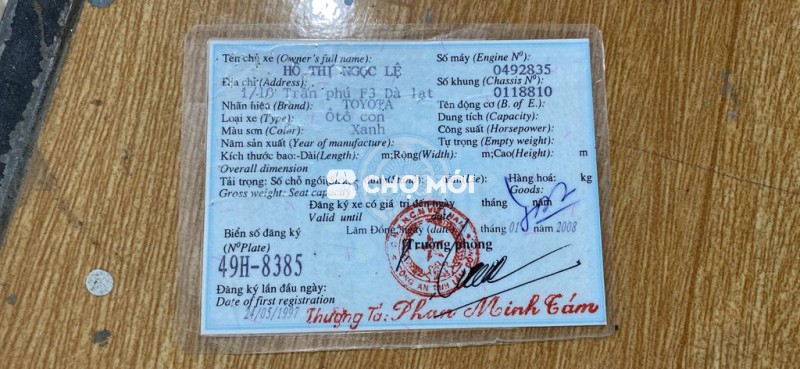 Tên chủ xe (Owner's full name):
HỒ THỊ NGỌC LỆ
Địa chỉ (Address):
1/10 Trần phú F3 Dà lạt
Nhãn hiệu (Brand): TOYOTA
Loại xe (Type): Ôtô con
Màu sơn (Color): Xanh
Năm sản xuất (Year of manufacture):
Kích thước bao:-Dài(Length): m;Rộng(Width): m;Cao(Height): m
Overall dimension
Tải trọng: Số chỗ ngồi: Hàng hoá: kg
Gross weight: Seat Goods:
Số máy (Engine Nº):
0492835
Số khung (Chassis Nº):
0118810
Tên động cơ (B. of E.):
Dung tích (Capacity):
Công suất (Horsepower):
Tự trọng (Empty weight):
CHỢ MỚI
Đăng ký xe có giá trị đến ngày tháng năm
Valid until date
Lâm Đồng, ngày (date) tháng 01 năm 2008
Trưởng phòng
Biển số đăng ký
(NºPlate)
49H-8385
Đăng ký lần đầu ngày:
Date of first registration
24/05/1997
Thượng Tá: Phan Minh Tám